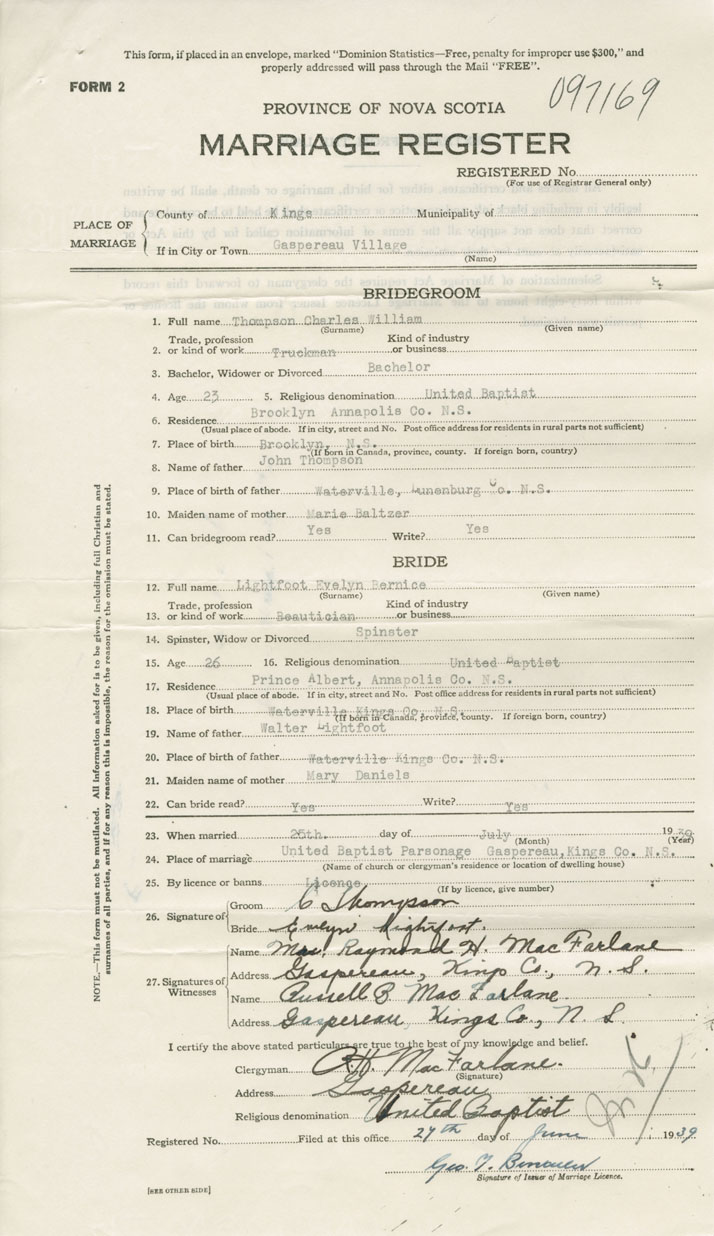 This form, if placed in an envelope, marked "Dominion Statistics—Free, penalty for improper use $300," and
properly addressed will pass through the Mail "FREE".
FORM 2
097169
PROVINCE OF NOVA SCOTIA
MARRIAGE REGISTER
REGISTERED No.
(For use of Registrar General only)
PLACE OF MARRIAGE
County of Kings Municipality of
If in City or Town Gaspereau Village
(Name)
BRIDEGROOM
1. Full name Thompson Charles William
(Surname) (Given name)
Trade, profession Kind of industry
2. or kind of work Truckman or business
3. Bachelor, Widower or Divorced Bachelor
4. Age 23 5. Religious denomination United Baptist
6. Residence Brooklyn Annapolis Co. N.S.
(Usual place of abode. If in city, street and No. Post office address for residents in rural parts not sufficient)
7. Place of birth Brooklyn, N.S.
(If born in Canada, province, county. If foreign born, country)
8. Name of father John Thompson
9. Place of birth of father Waterville, Lunenburg Co. N.S.
10. Maiden name of mother Marie Baltzer
11. Can bridegroom read? Yes Write? Yes
BRIDE
12. Full name Lightfoot Evelyn Bernice
(Surname) (Given name)
Trade, profession Kind of industry
13. or kind of work Beautician or business
14. Spinster, Widow or Divorced Spinster
15. Age 26 16. Religious denomination United Baptist
17. Residence Prince Albert, Annapolis Co. N.S.
(Usual place of abode. If in city, street and No. Post office address for residents in rural parts not sufficient)
18. Place of birth Waterville Kings Co. N.S.
(If born in Canada, province, county. If foreign born, country)
19. Name of father Walter Lightfoot
20. Place of birth of father Waterville Kings Co. N.S.
21. Maiden name of mother Mary Daniels
22. Can bride read? Yes Write? Yes
23. When married 25th. day of July 1939
(Month) (Year)
24. Place of marriage United Baptist Parsonage Gaspereau, Kings Co. N.S.
(Name of church or clergyman's residence or location of dwelling house)
25. By licence or banns Licence
(If by licence, give number)
26. Signature of
Groom C Thompson
Bride Evelyn Lightfoot.
27. Signatures of Witnesses
Name Mrs. Raymond H. MacFarlane
Address Gaspereau, Kings Co., N. S.
Name Russell B MacFarlane.
Address Gaspereau, Kings Co., N S
I certify the above stated particulars are true to the best of my knowledge and belief.
Clergyman R.H. MacFarlane.
(Signature)
Address Gaspereau
Religious denomination United Baptist
Registered No. Filed at this office 27th day of June 1939
Geo. T.
Signature of Issuer of Marriage Licence.
[SEE OTHER SIDE]
NOTE.—This form must not be mutilated. All information asked for is to be given, including full Christian and
surnames of all parties, and if for any reason this is impossible, the reason for the omission must be stated.